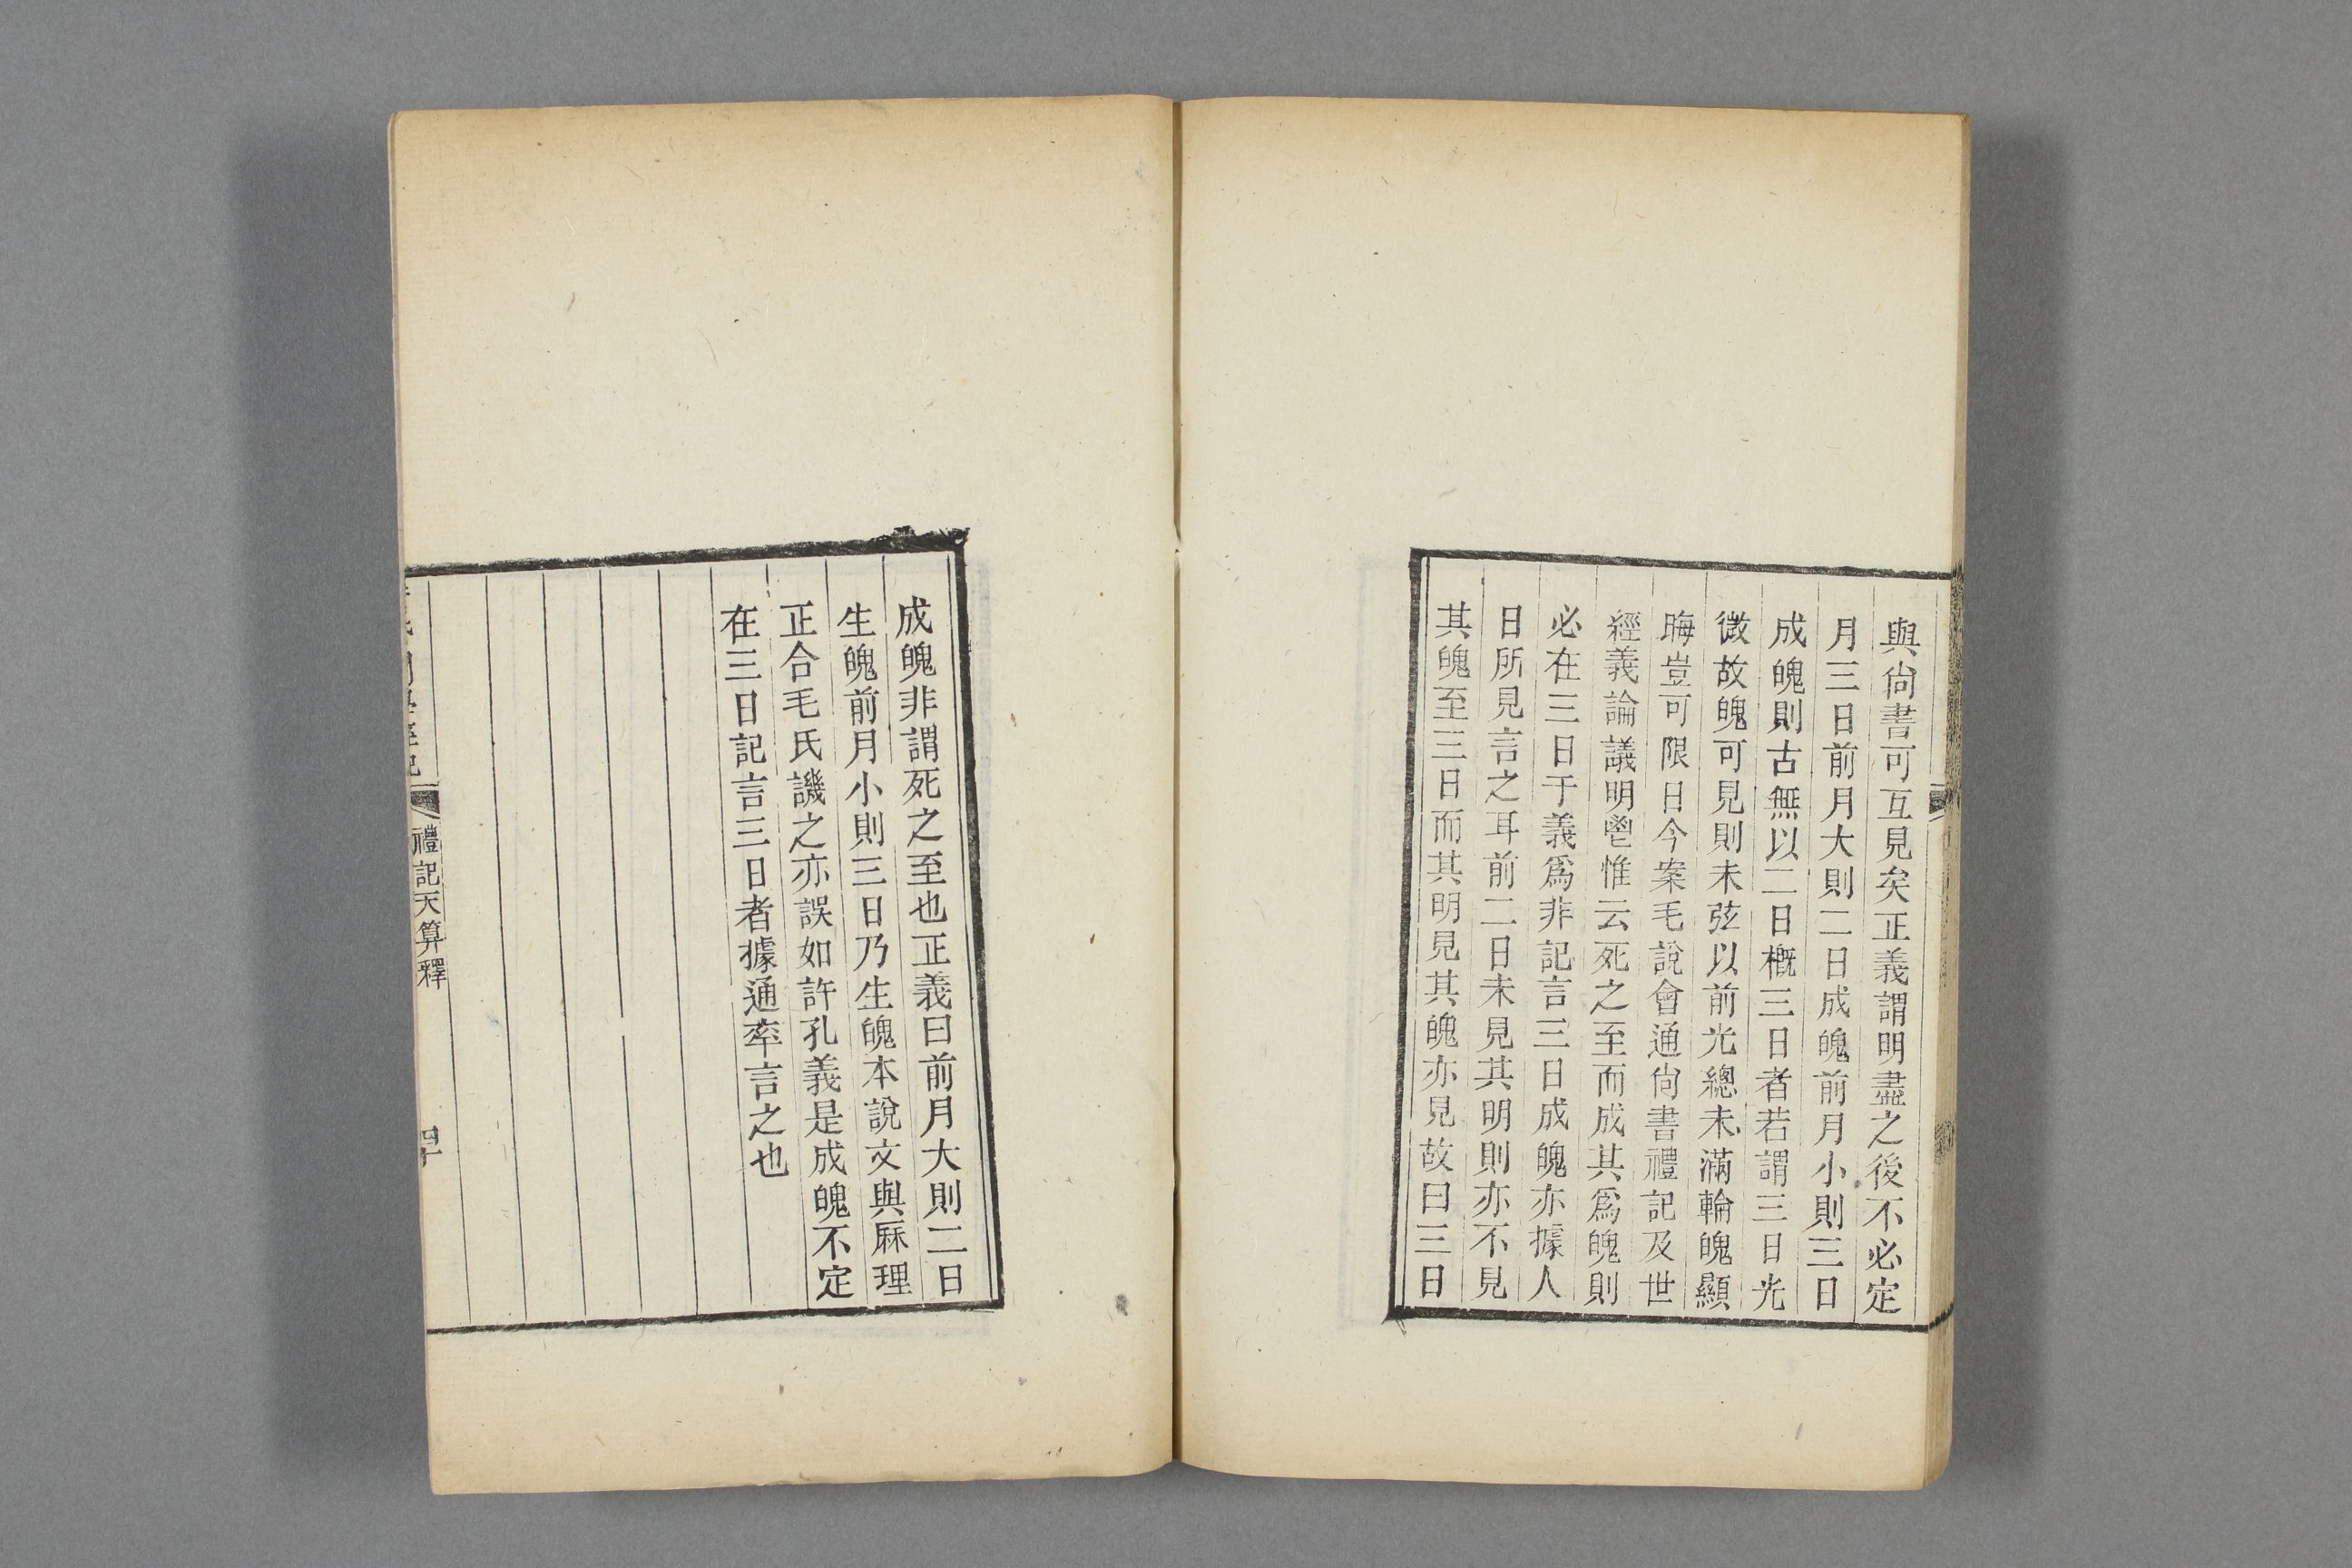 與尙書可互見矣正義謂明盡之後不必定
月三日前月大則二日成魄前月小則三日
成魄則古無以二日槪三日者若謂三日光
微故魄可見則未弦以前光總未滿輪魄顯
晦豈可限日今案毛說會通尙書禮記及世
經義論議明鬯惟云死之至而成其爲魄則
必在三日于義爲非記言三日成魄亦據人
日所見言之耳前二日未見其明則亦不見
其魄至三日而其明見其魄亦見故曰三日
成魄非謂死之至也正義曰前月大則二日
生魄前月小則三日乃生魄本說文與厤理
正合毛氏譏之亦誤如許孔義是成魄不定
在三日記言三日者據通率言之也
禮記天算釋